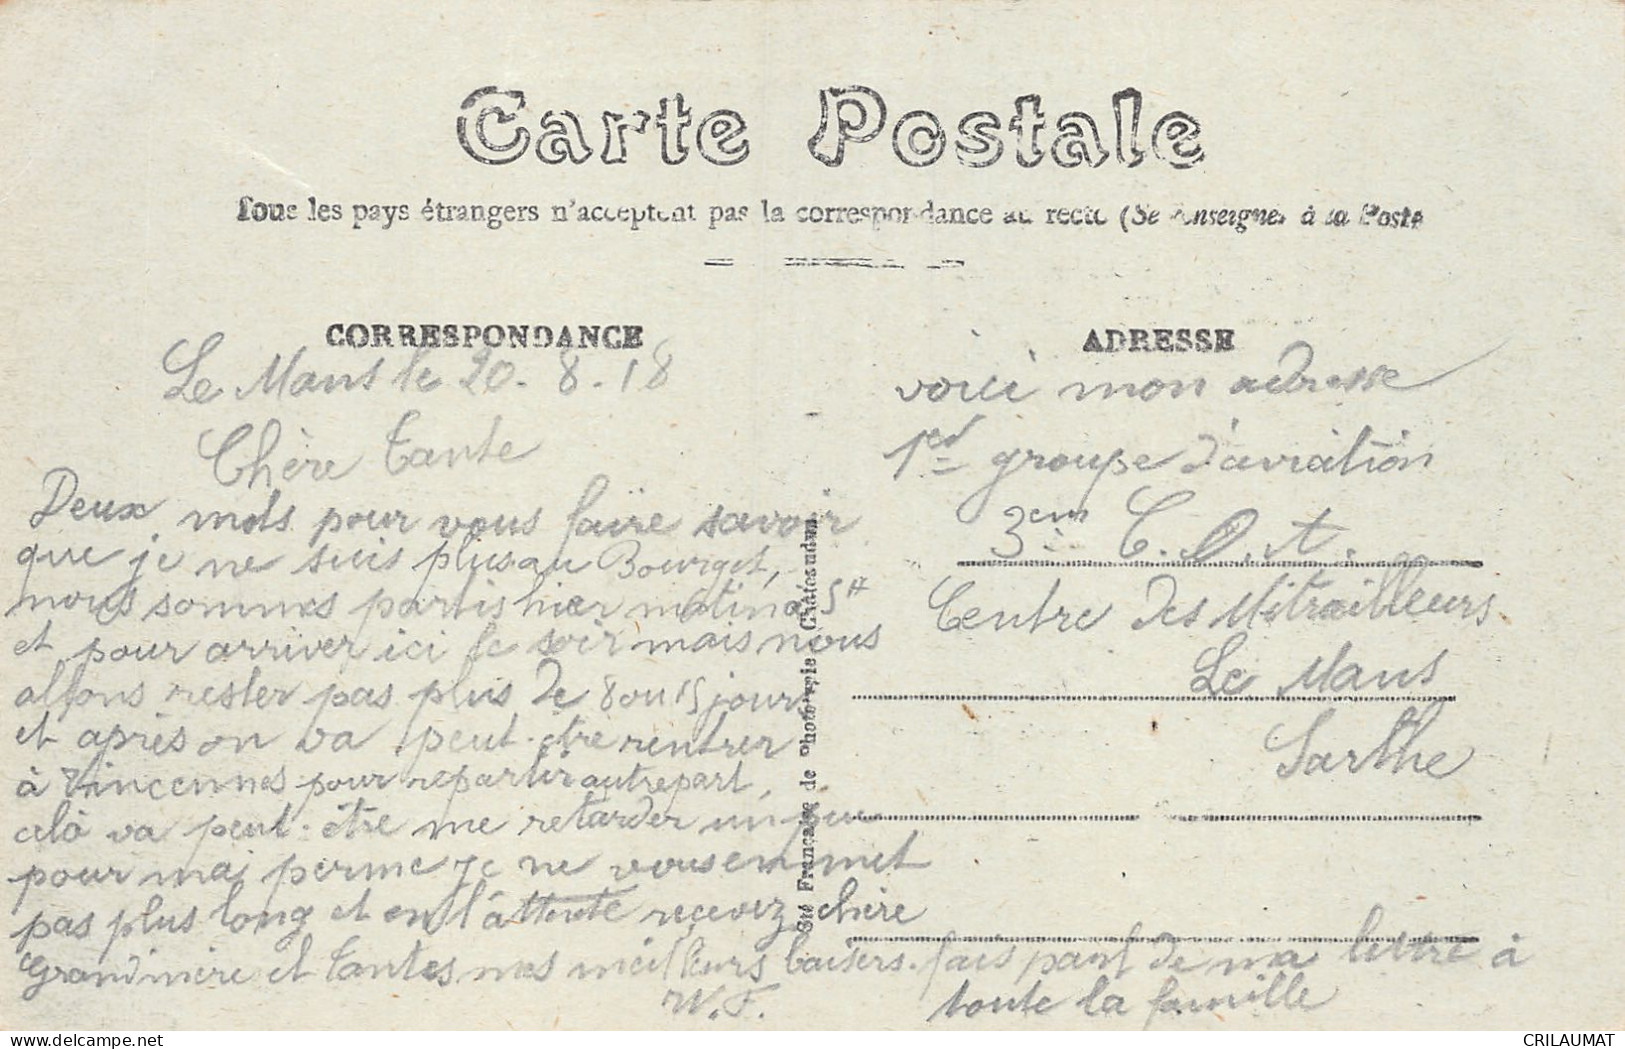 Carte Postale
Tous les pays étrangers n'acceptent pas la correspondance au recto (Se renseigner à la Poste
CORRESPONDANCE
Le Mans le 20-8-18
Chère tante
Deux mots pour vous faire savoir
que je ne suis plus au Bourget,
nous sommes partis hier matin a 5H
et pour arriver ici le soir mais nous
allons rester pas plus de 8 ou 15 jours
et après on va peut-être rentrer
à Vincennes pour repartir autrepart,
celà va peut-être me retarder un peu
pour mai perme je ne vous en met
pas plus long et en l'âttente recevez chère
Grandmère et tantes mes meilleurs baisers.
W.F.
ADRESSE
voici mon adresse
1er groupe d'aviation
3em C.O.A.
Centre des Mitrailleurs
Le Mans
Sarthe
fais part de ma lettre à
toute la famille
Sté Française de Phototypie Châteaudun
CRILAUMAT